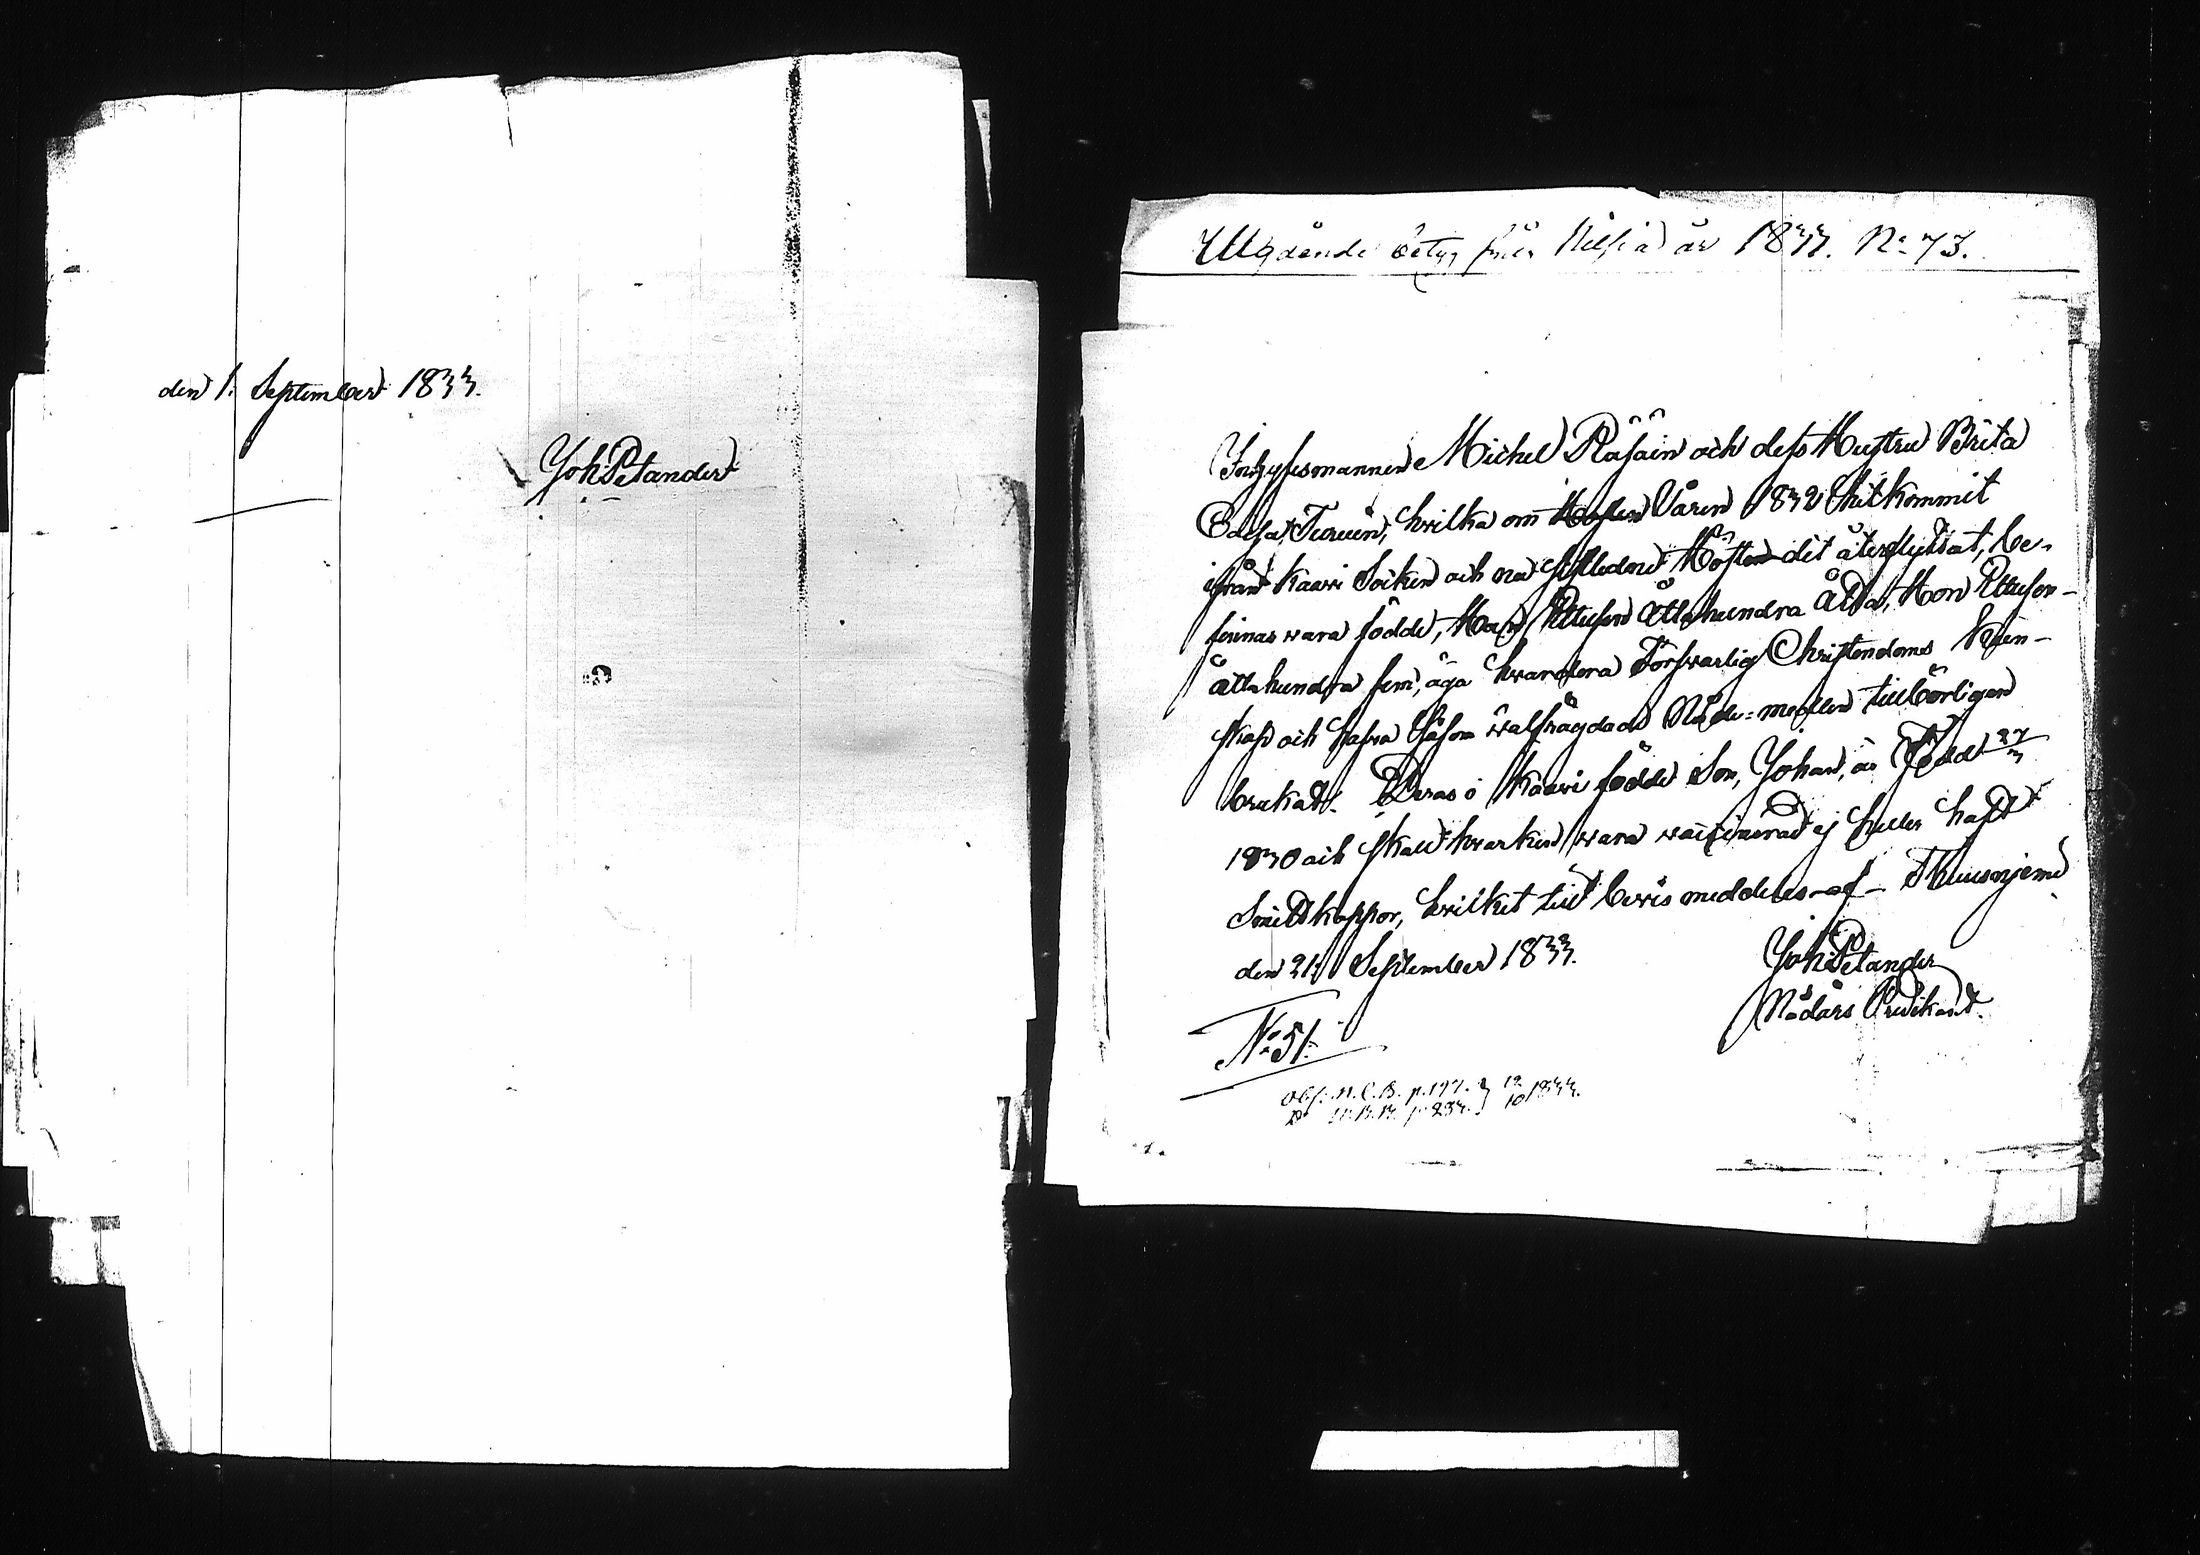 den 1. September 1833.
Joh Petander
Utgående betyg från Nilsiä år 1833. No 73.
Inhysesmannen Michel Räsäin och dess Hustru Brita
Cajsa Turuin, hvilka om Hösten Våren 1832 hitkommit
ifrån Kaavi Socken och nu sistledne Hösten dit återflyttat, be-
finnas vara födde, Han Ettusen Åttahundra Åtta, Hon Ettusen
Åttahundra fem, äga hvardera Försvarlig Christendoms Kun-
skap och hafva såsom välfrägdade Nåde-medlen tillbörligen
brukat. Deras i Kaavi födde Son, Johan, är Född 27/3
1830 och skall hvarken vara vaccinerad ej heller haft
Smittkoppor, hvilket till bevis meddeles af Thuusnjemi
den 21 September 1833.
Joh Petander
Nådårs Predikant.
No 51.
Obs. N.C.B. p.197. } 12/10 1833.
D:o p. 233.